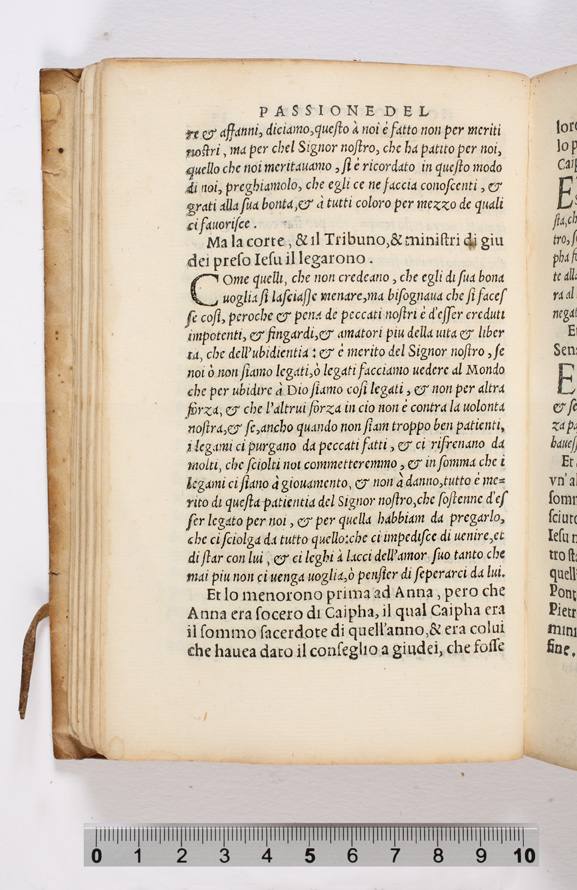 PASSIONE DEL
re & affanni, diciamo, queſto à noi é fatto non per meriti
noſtri, ma per chel Signor noſtro, che ha patito per noi,
quello che noi meritauamo, ſi é ricordato in queſto modo
di noi, preghiamolo, che egli ce ne faccia conoſcenti, &
grati alla ſua bonta, & à tutti coloro per mezzo de quali
ci fauoriſce.
Ma la corte, & il Tribuno, & miniſtri di giu
dei preſo Ieſu il legarono.
COme quelli, che non credeano, che egli di ſua bona
uoglia ſi laſciaſſe menare, ma biſognaua che ſi faceſ
ſe coſi, peroche & pena de peccati noſtri é d'eſſer creduti
impotenti, & fingardi, & amatori piu della uita & liber
ta, che dell'ubidientia: & é merito del Signor noſtro, ſe
noi ò non ſiamo legati, ò legati facciamo uedere al Mondo
che per ubidire à Dio ſiamo coſi legati, & non per altra
fòrza, & che l'altrui fòrza in cio non é contra la uolonta
noſtra, & ſe, ancho quando non ſiam troppo ben patienti,
i legami ci purgano da peccati fatti, & ci rifrenano da
molti, che ſciolti noi commetteremmo, & in ſomma che i
legami ci ſiano à giouamento, & non à danno, tutto é me=
rito di queſta patientia del Signor noſtro, che ſoſtenne d'eſ
ſer legato per noi, & per quella habbiam da pregarlo,
che ci ſciolga da tutto quello: che ci impediſce di uenire, et
di ſtar con lui, & ci leghi à lacci dell'amor ſuo tanto che
mai piu non ci uenga uoglia, ò penſier di ſeperarci da lui.
Et lo menorono prima ad Anna, pero che
Anna era ſocero di Caipha, il qual Caipha era
il ſommo ſacerdote di quell'anno, & era colui
che hauea dato il conſeglio a giudei, che foſſe
0 1 2 3 4 5 6 7 8 9 10